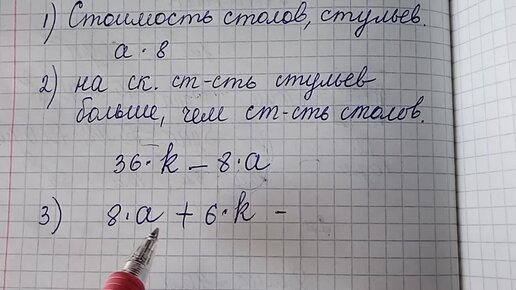 1) Стоимость столов, стульев.
а · 8
2) на ск. ст-сть стульев
больше, чем ст-сть столов.
36 · k – 8 · а
3) 8 · а + 6 · k –